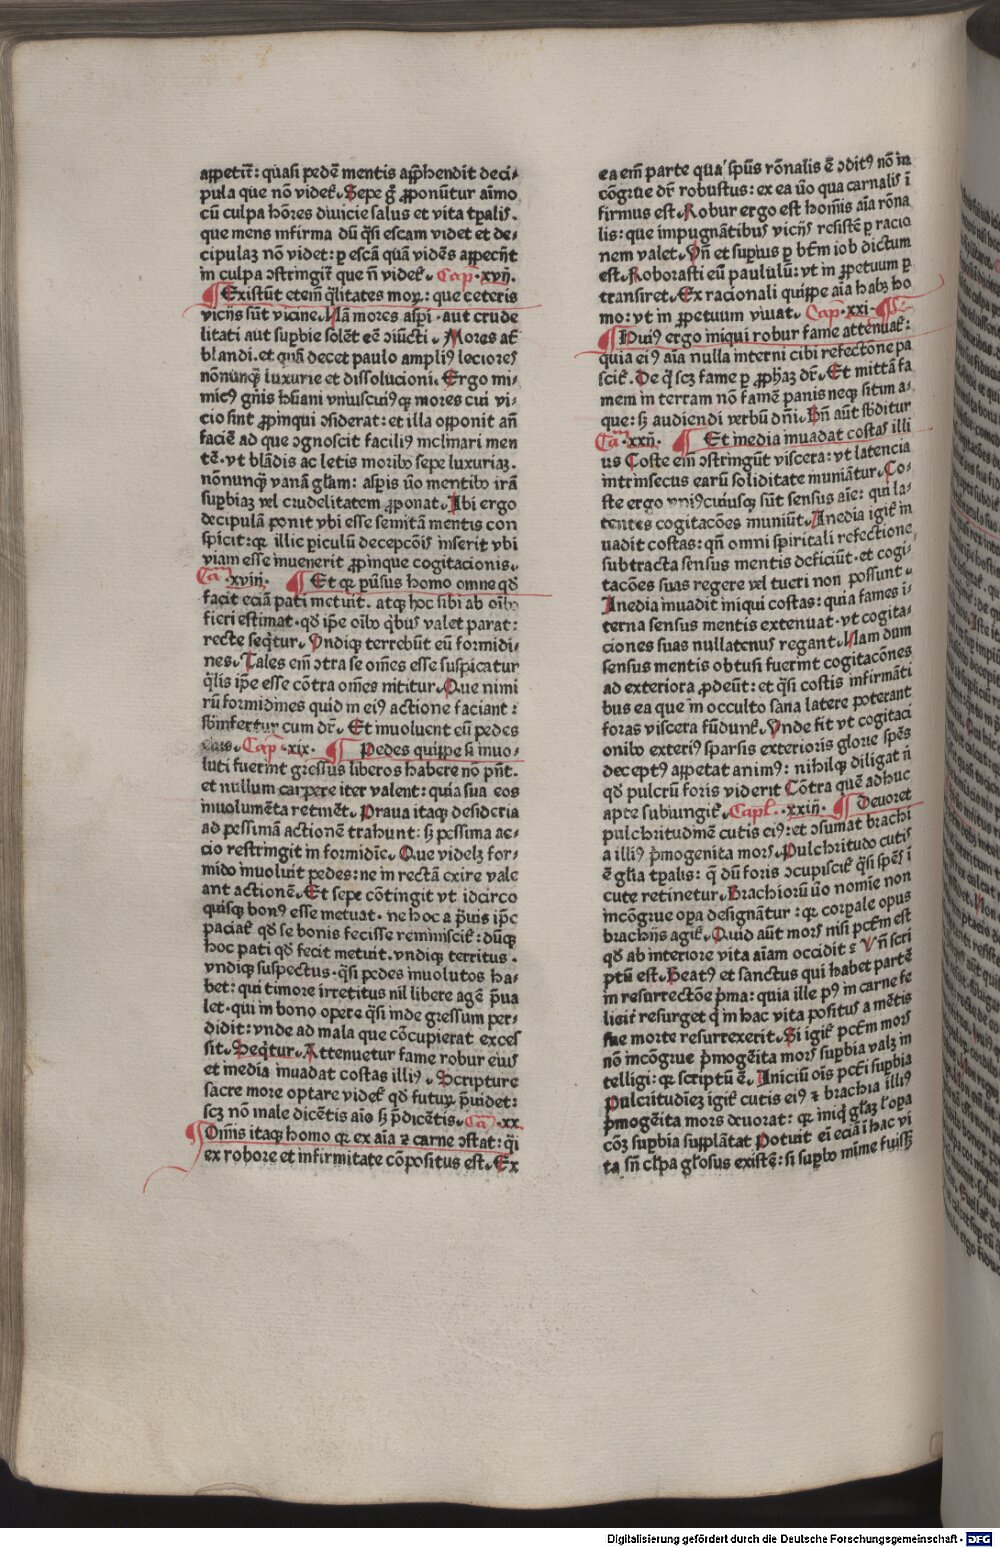 appetit̄: quasi pedē mentis app̄hendit deci⸗
pula que nō videt̄. Sepe ḡ ꝓponūtur aīmo
cū culpa hōres diuicie salus et vita tp̄alis.
que mens infirma dū q̄si escam videt et de⸗
cipulaꝫ nō videt: ꝑ escā quā vidēs appecijt
in culpa ꝯstringit̄ que n̄ videt̄. Cap̄ .xvij.
¶ Existūt eteīm q̄litates moꝝ: que ceteris
vicijs sūt vicine. Nā mores asꝑi. aut crude
litati aut supbie solēt eē ꝯiūcti. Mores aūt
blandi. et quā decet paulo ampliꝰ leciores
nōnunqꝫ luxurie et dissolucioni. Ergo ini⸗
micꝰ gn̄is hūani vniuscuiꝰqꝫ mores cui vi⸗
cio sint ꝓpinqui ꝯsiderat: et illa opponit añ
faciē ad que ꝯgnoscit faciliꝰ inclinari men
tē. vt blādis ac letis moribꝰ sepe luxuriaꝫ.
nōnunqꝫ vanā glām: asꝑis v̄o mentibꝰ irā
supbiaꝫ vel crudelitatem ꝓponat. Ibi ergo
decipulā ponit vbi esse semitā mentis con
spicit: qꝛ illic ꝑiculū decepcōis inserit vbi
viam esse inuenerit ꝓpinque cogitacionis.
Ca .xviij. ¶ Et qꝛ puersus homo omne qd̄
facit eciā pati metuit. atqꝫ hoc sibi ab oībꝰ
fieri estimat. qd̄ ip̄e oībꝰ qb̄us valet parat:
recte seqtur. Vndiqꝫ terrebūt eū formidi⸗
nes. Tales eīm ꝯtra se om̄es esse suspicatur
q̄lis ip̄e esse cōtra om̄es nititur. Que nimi
rū formidines quid in eiꝰ actione faciant:
subinfertur cum dr̄. Et inuoluent eū pedes
eius. Cap̄ .xix. ¶ Pedes quippe si inuo⸗
luti fuerint gressus liberos habere nō pn̄t.
et nullum carpere iter valent: quia sua eos
inuolumēta retinēt. Praua itaqꝫ desideria
ad pessimā actionē trahunt: sꝫ pessima ac⸗
cio restringit in formidīe. Que videlꝫ for⸗
mido inuoluit pedes: ne in rectā exire vale
ant actionē. Et sepe cōtingit vt idcirco
quisqꝫ bonꝰ esse metuat. ne hoc a prauis ip̄e
paciat̄ qd̄ se bonis fecisse reminiscit̄: dūqꝫ
hoc pati qd̄ fecit metuit. vndiqꝫ territus.
vndiqꝫ suspectus. q̄si pedes inuolutos ha⸗
bet: qui timore irretitus nil libere agē p̄ua
let. qui in bono opere q̄si inde gressum per⸗
didit: vnde ad mala que cōcupierat exces
sit. Seqtur. Attenuetur fame robur eius
et inedia inuadat costas illiꝰ. Scripture
sacre more optare videt̄ qd̄ futuꝝ p̄uidet:
scꝫ nō maledicētis aīo sꝫ p̄dicētis. Ca .xx.
¶ Omīs itaqꝫ homo qꝛ ex aīa ꝛ carne ꝯstat: q̄si
ex robore et infirmitate cōpositus est. Ex
ea eīm parte qua spūs rōnalis ē ꝯditꝰ nō in
cōgrue dr̄ robustus: ex ea v̄o qua carnalis ī
firmus est. Robur ergo est homīs aīa rōna
lis: que impugnātibus vicijs resistē ꝑ racio
nem valet. Vn̄ et supius ꝑ btm̄ iob dictum
est. Roborasti eū paululū: vt in ꝑpetuum ꝑ
transiret. Ex racionali quippe aīa habꝫ ho
mo: vt in ꝑpetuum viuat. Cap̄ .xxi.
¶ Huiꝰ ergo iniqui robur fame attenuat̄:
quia eiꝰ aīa nulla interni cibi refectōne pa
scit̄. De q̄ scꝫ fame ꝑ ꝓphaꝫ dr̄. Et mittā fa
mem in terram nō famē panis neqꝫ sitim a⸗
que: sꝫ audiendi verbū dn̄i. Bn̄ aūt sbditur
Ca .xxij. ¶ Et inedia inuadat costas illi
us Coste eīm ꝯstringūt viscera: vt latencia
intrinsecus earū soliditate muniātur. Co⸗
ste ergo vniꝰcuiusqꝫ sūt sensus aīe: qui la⸗
tentes cogitacōes muniūt. Inedia igit̄ in
uadit costas: qn̄ omni spiritali refectione
subtracta sensus mentis deficiūt. et cogi⸗
tacōes suas regere vel tueri non possunt.
Inedia inuadit iniqui costas: quia fames i⸗
terna sensus mentis extenuat. vt cogita⸗
ciones suas nullatenus regant. Nam dum
sensus mentis obtusi fuerint cogitacōnes
ad exteriora ꝓdeūt: et q̄si costis infirmāti
bus ea que in occulto sana latere poterant
foras viscera fūdunt̄. Vnde fit vt cogitaci
onibꝰ exteriꝰ sparsis exterioris glorie spēs
deceptꝰ appetat animꝰ: nihilqꝫ diligat n̄
qd̄ pulcrū foris viderit Cōtra quē adhuc
apte subiungit̄. Capl̄ .xxiij. ¶ Deuoret
pulchritudinē cutis eiꝰ: et ꝯsumat brachi
a illiꝰ p̄mogenita mors. Pulchritudo cutis
ē gl̄ia tp̄alis: q̄ dū foris ꝯcupiscit̄ q̄si spēs ī
cute retinetur. Brachiorū v̄o nomīe non
incōgrue opa designātur: qꝛ corꝑale opus
brachijs agit̄. Quid aūt mors nisi pctm̄ est
qd̄ ab interiore vita aīam occidit: Vn̄ scri
ptū est. Beatꝰ et sanctus qui habet partē
in resurrectōe p̄ma: quia ille pꝰ in carne fe
liciter resurget q̄ in hac vita positus a mētis
sue morte resurrexerit. Si igit̄ pctm̄ mors
nō incōgrue p̄mogēita mors supbia valꝫ in
telligi: qꝛ scriptū ē. Iniciū oīs pcti supbia
Pulcritudieꝫ igit̄ cutis eiꝰ ꝛ brachia illiꝰ
p̄mogēita mors deuorat: qꝛ iniq̄ gl̄aꝫ l̄ opa
cōꝫ supbia supplātat Potuit eī eciā ī hac vi
ta sn̄ cl̄pa gl̄osus existē: si supbꝰ mīme fuissꝫ
Digitalisierung gefördert durch die Deutsche Forschungsgemeinschaft - DFG